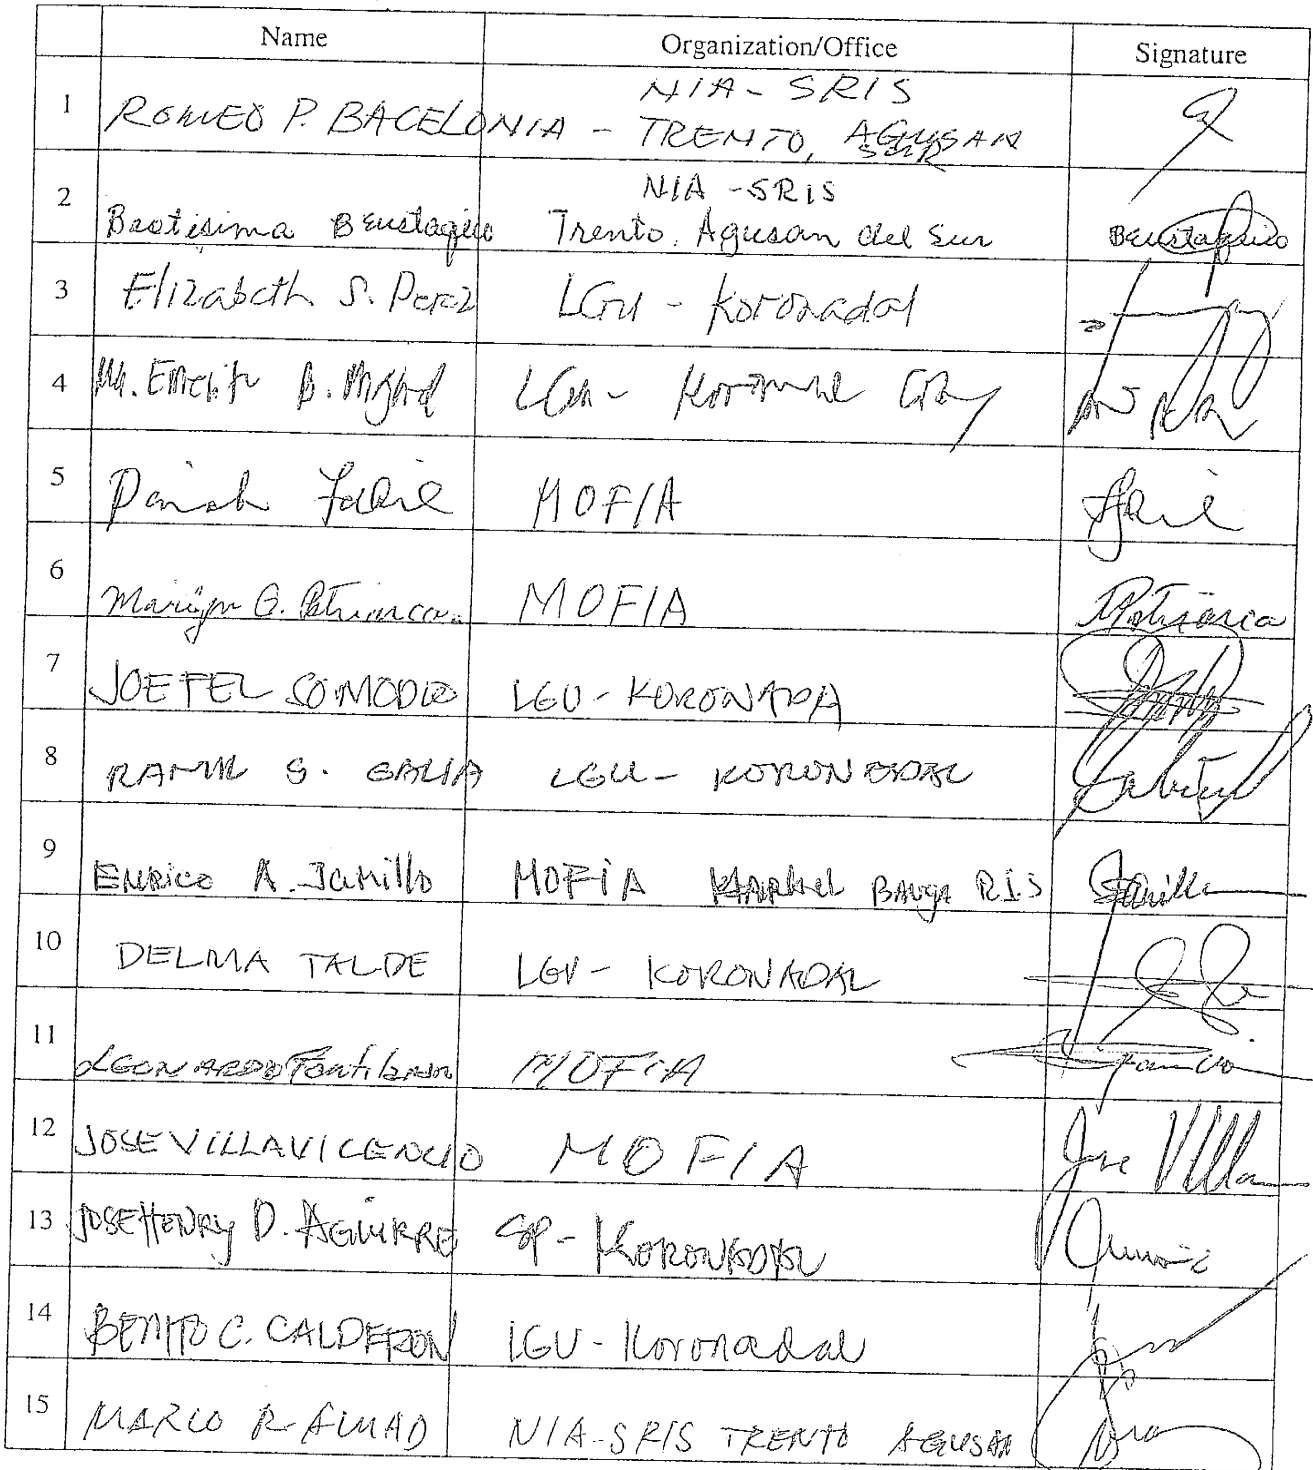 Name Organization/Office Signature
1 ROMEO P. BACELONIA - NIA - SRIS
TRENTO, AGUSAN
SUR
2 NIA - SRIS
Beatisima B Eustaquio Trento. Agusan del Sur BEustaquio
3 Elizabeth S. Perez LGU - Koronadal
4 Ma. B. LGU -
5 MOFIA
6 Marilyn G. Patriarca MOFIA MPatriarca
7 JOEFEL SOMODIO LGU - KORONADA
8 RAMIL S. GALIA LGU - KORONADAL
9 ENRICO A. Jamillo MOFIA BANGA RIS
10 DELMA TALDE LGU - KORONADAL
11 LEONARDO Fontiban MOFIA
12 JOSE VILLAVICENCIO MOFIA Jose Villa
13 JOSE HENRY D. AGUIRRE SP - KORONADAL
14 BENITO C. CALDERON LGU - Koronadal
15 MARIO R NIA-SRIS TRENTO AGUSAN